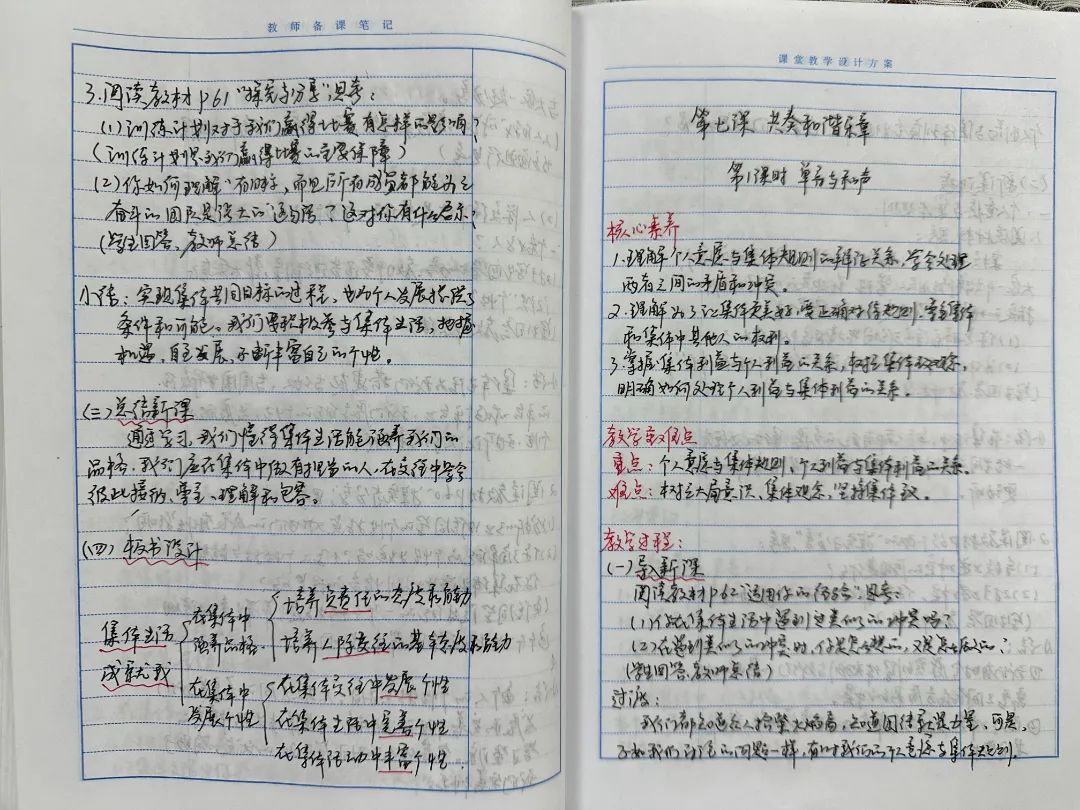 教师备课笔记
3.阅读教材P61"探究与分享"思考：
(1)训练计划对于我们赢得比赛有怎样的影响？
(训练计划是我们赢得比赛的重要保障)
(2)你如何理解"有目标，而且所有成员都能为之
奋斗的团队是强大的"这句话？这对你有什么启示？
(学生回答、教师总结)
小结：实现集体共同目标的过程，也为个人发展提供了
条件和可能。我们要积极参与集体生活，把握
机遇，自主发展，不断丰富自己的个性。
(三)总结新课
通过学习，我们懂得集体生活能涵养我们的
品格，我们应在集体中做有担当的人，在交往中学会
彼此接纳、尊重、理解和包容。
(四)板书设计
集体生活
成就我
在集体中
涵养品格
培养负责任的态度和能力
培养人际交往的基本态度和能力
在集体中
发展个性
在集体交往中发展个性
在集体生活中完善个性
在集体活动中丰富个性
课堂教学设计方案
第七课 共奏和谐乐章
第1课时 单音与和声
核心素养
1.理解个人意愿与集体规则的辩证关系，学会处理
两者之间的矛盾和冲突。
2.理解为了让集体更美好，要正确对待规则，尊重集体
和集体中其他人的权利。
3.掌握集体利益与个人利益的关系，树立集体主义观念，
明确如何处理个人利益与集体利益的关系。
教学重难点
重点：个人意愿与集体规则、个人利益与集体利益的关系。
难点：树立大局意识、集体观念，坚持集体主义。
教学过程：
(一)导入新课
阅读教材P62"运用你的经验"思考：
(1)你在集体生活中遇到过类似的冲突吗？
(2)在遇到类似的冲突时，你是怎么想的，又是怎么做的？
(学生回答、教师总结)
过渡：
我们都知道众人拾柴火焰高，知道团结就是力量，可是，
正如我们讨论的问题一样，有时我们的个人意愿与集体规则，